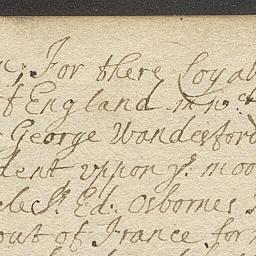 For there Loyal
f England in wch
George Wandesford
dent uppon ye: moo
le Sr. Ed: Osbornes
out of France for